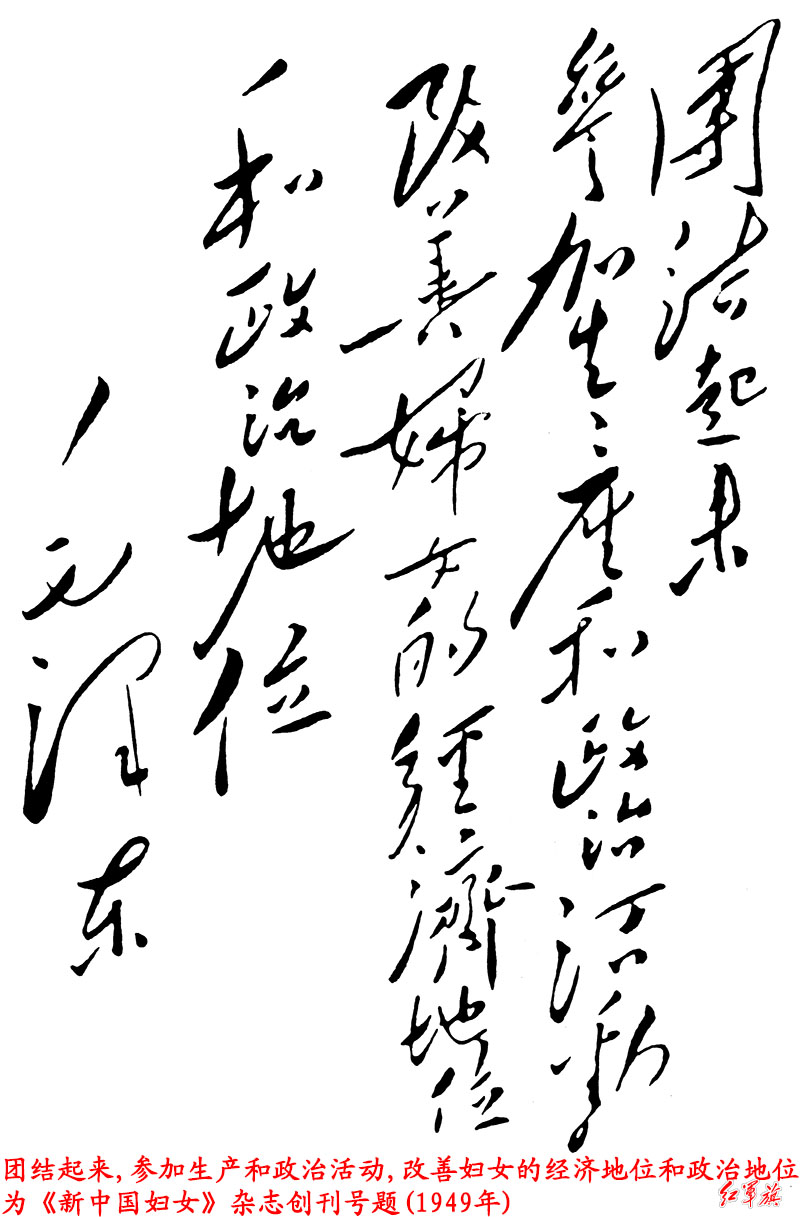 團结起来
參加生産和政治活動
改善婦女的經濟地位
和政治地位
毛澤东
团结起来,参加生产和政治活动,改善妇女的经济地位和政治地位
为《新中国妇女》杂志创刊号题(1949年)
红军旗